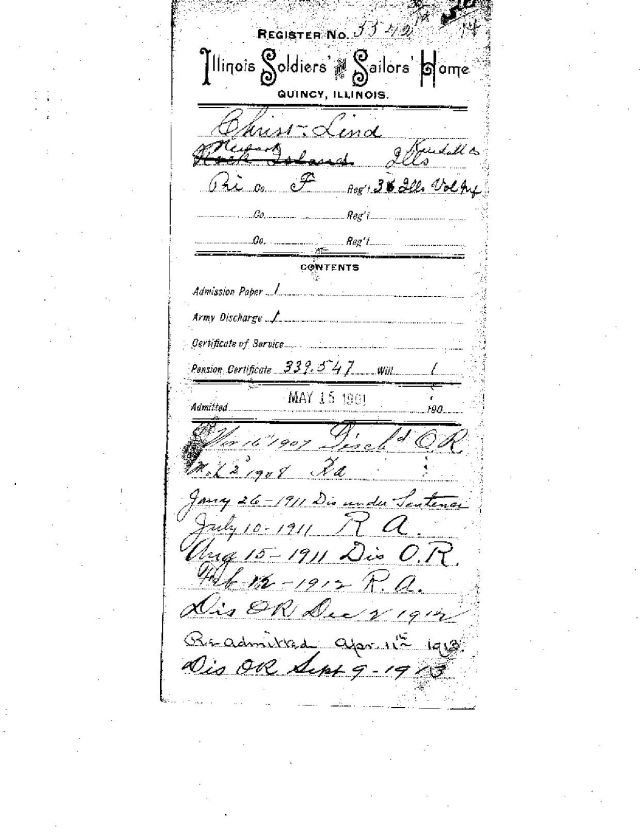 REGISTER No. 5542
Illinois Soldiers' and Sailors' Home
QUINCY, ILLINOIS.
Christ. Lind
Newark Kendall Co
Rock Island Ills
Pri Co. F Reg't 36 Ills Vol Inf
Co. Reg't
Co. Reg't
CONTENTS
Admission Paper 1
Army Discharge 1
Certificate of Service
Pension Certificate 339.547 Will 1
Admitted MAY 15 1901 190
Nov 16" 1907 Disch'd O.R.
Mch 2" 1908 Ra
Jany 26-1911 Dis under Sentence
July 10-1911 R A.
Aug 15-1911 Dis O.R.
Feb 12-1912 R.A.
Dis OR Dec 2 1912
Re-admitted Apr. 11th 1913.
Dis OR Sept 9-1913